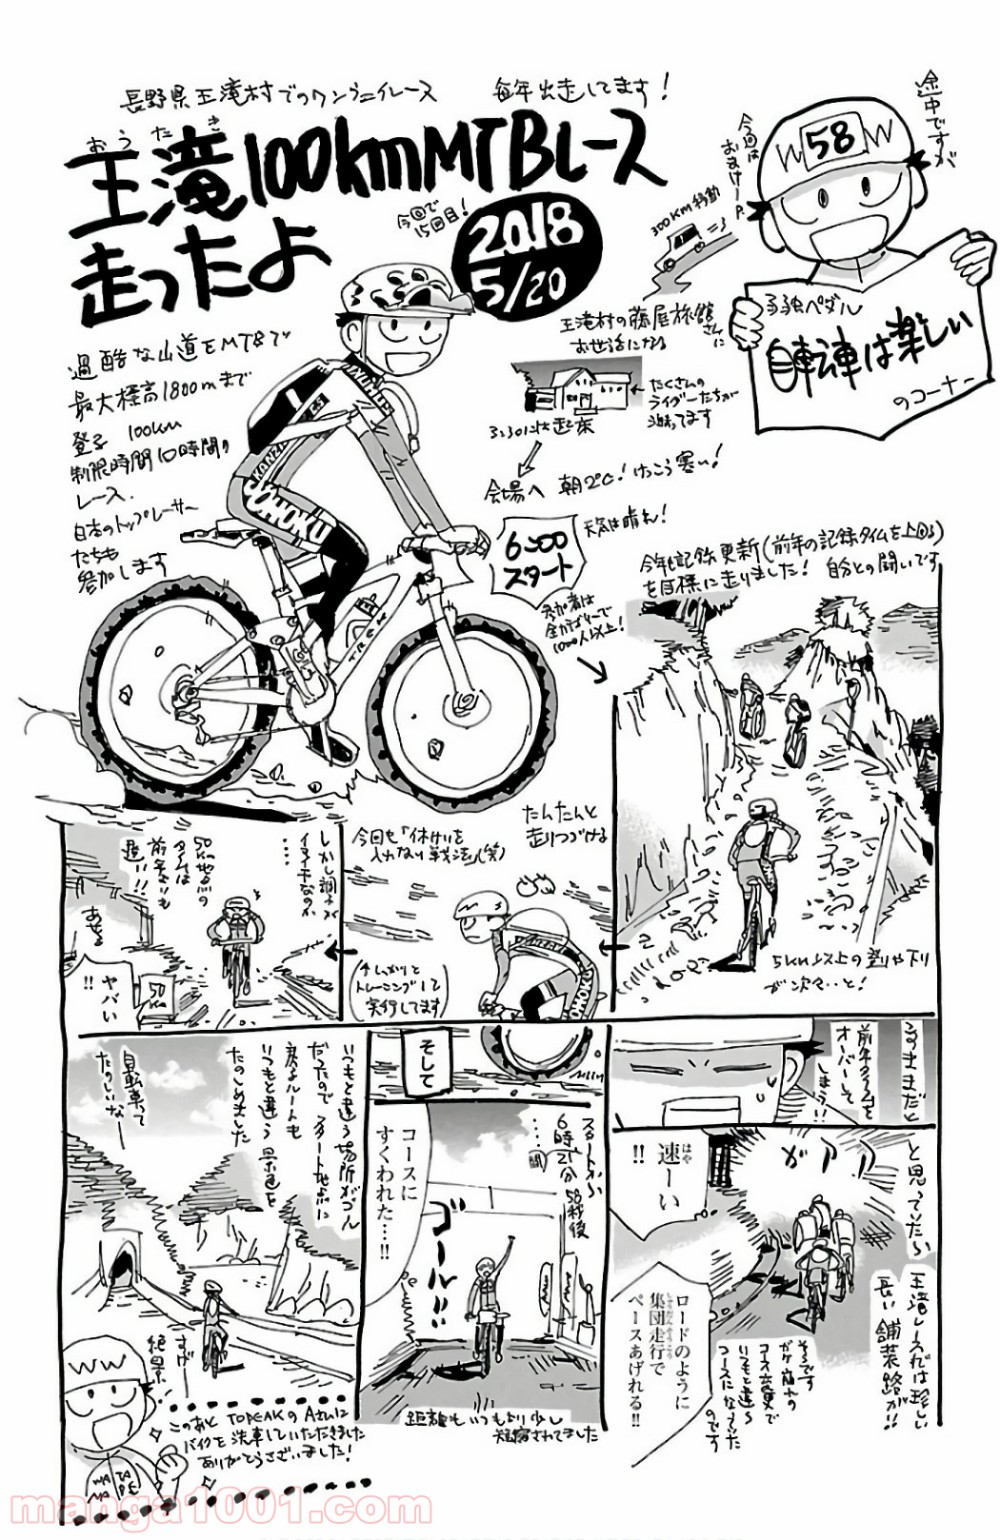 長野県王滝村でのワンデイレース
毎年出走してます!
おうたき
王滝100kmMTBレース
走ったよ
今回で
15回目!
2018
5/20
途中ですが
今回は
おまけーP.
58
W W
弱虫ペダル
自転車は楽しい
のコーナー
300km移動
王滝村の藤屋旅館さんに
お世話になる
たくさんの
ライダーたちが
泊ってます
3:30に起床
会場へ 朝2℃!けっこう寒い!
過酷な山道をMTBで
最大標高1800mまで
登る 100km
制限時間10時間の
レース.
日本のトップレーサー
たちも
参加します
KANZAKI
YOHOKU
TREK
6:00
スタート
天気は晴れ!
参加者は
全カテゴリーで
1000人以上!
今年も記録更新(前年の記録タイムを上回る)
を目標に走りました! 自分との闘いです
5km以上の登りや下り
が次々…と!
たんたんと
走りつづける
今回も「休けいを
入れない戦法」(笑)
(しっかりと
トレーニングして
実行してます)
しかし調子が
イマイチなのか
…
50km地点の
タイムは
前年よりも
遅い!!
あせる
ヤバい
!!
50km
このままだと
前年タイムを
オーバーして
しまう!!
と思っていたら
王滝レースでは珍しい
長い舗装路が!!
そうです
ガケ崩れの
コース変更で
いつもと違う
コースになっていた
のです
ガアアア
速ーい
はや
!!
ロードのように
集団走行で
しゅうだんそうこう
ペースあげれる!!
そして
スタートから
6時間21分58秒後
…
ゴール!!
コースに
すくわれた…!!
距離もいつもより少し
短縮されてました
いつもと違う場所がゴール
だったので スタート地点に
戻るルートも
いつもと違う景色を
たのしめました
自転車って
たのしいなー
すげー
絶景
WW
このあとTOPEAKのAさんに
バイクを洗車していただきました
ありがとうございました!
WATA
NABE
manga1001.com